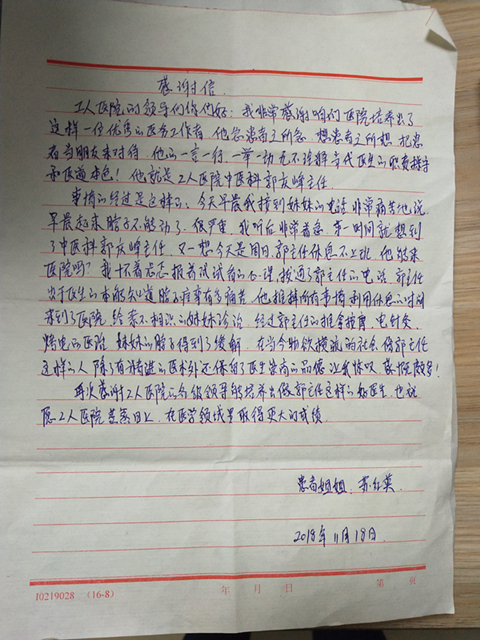 感谢信
工人医院的领导们你们好：我非常感谢咱们医院培养出了
这样一位优秀的医务工作者，他急患者之所急，想患者之所想，把患
者当朋友来对待，他的一言一行，一举一动无不诠释当代医生的职责
和医道本色！他就是工人医院中医科郭友峰主任。
事情的经过是这样的：今天早晨我接到妹妹的电话非常痛苦他说
早晨起来脖子不能动了，很严重，我听后非常着急，第一时间就想到
了中医科郭友峰主任，又一想今天是周日郭主任休息不上班，他能来
医院吗？我怀着忐忑 试试看的心理，拨通了郭主任的电话，郭主任
出于医生的本能知道脖子疼有多痛苦，他推掉所有事情利用休息的时间
来到了医院，给素不相识的妹妹诊治，经过郭主任的推拿按摩，电针灸，
烤电的医治，妹妹的脖子得到了缓解，在当今物欲横流的社会像郭主任
这样的人除了有精湛的医术外还保有了医生崇高的品德，让我惊叹，感慨
再次感谢工人医院的各级领导能培养出像郭主任这样的好医生，也祝
愿工人医院蒸蒸日上，在医学领域里取得更大的成绩。
患者姐姐：苏红英
2018年11月18日
10219028 （16-8） 年 月 日 第 页